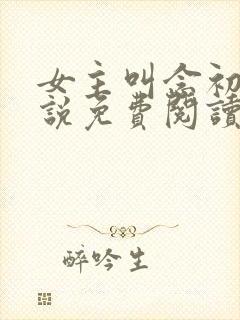 女主叫念初
說免費閱讀
醉吟生